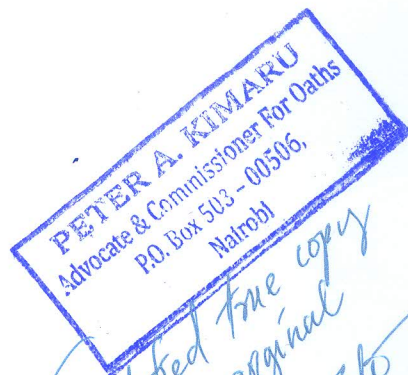 PETER A. KIMARU
Advocate & Commissioner For Oaths
P.O. Box 503 - 00506,
Nairobi
true copy
orginal